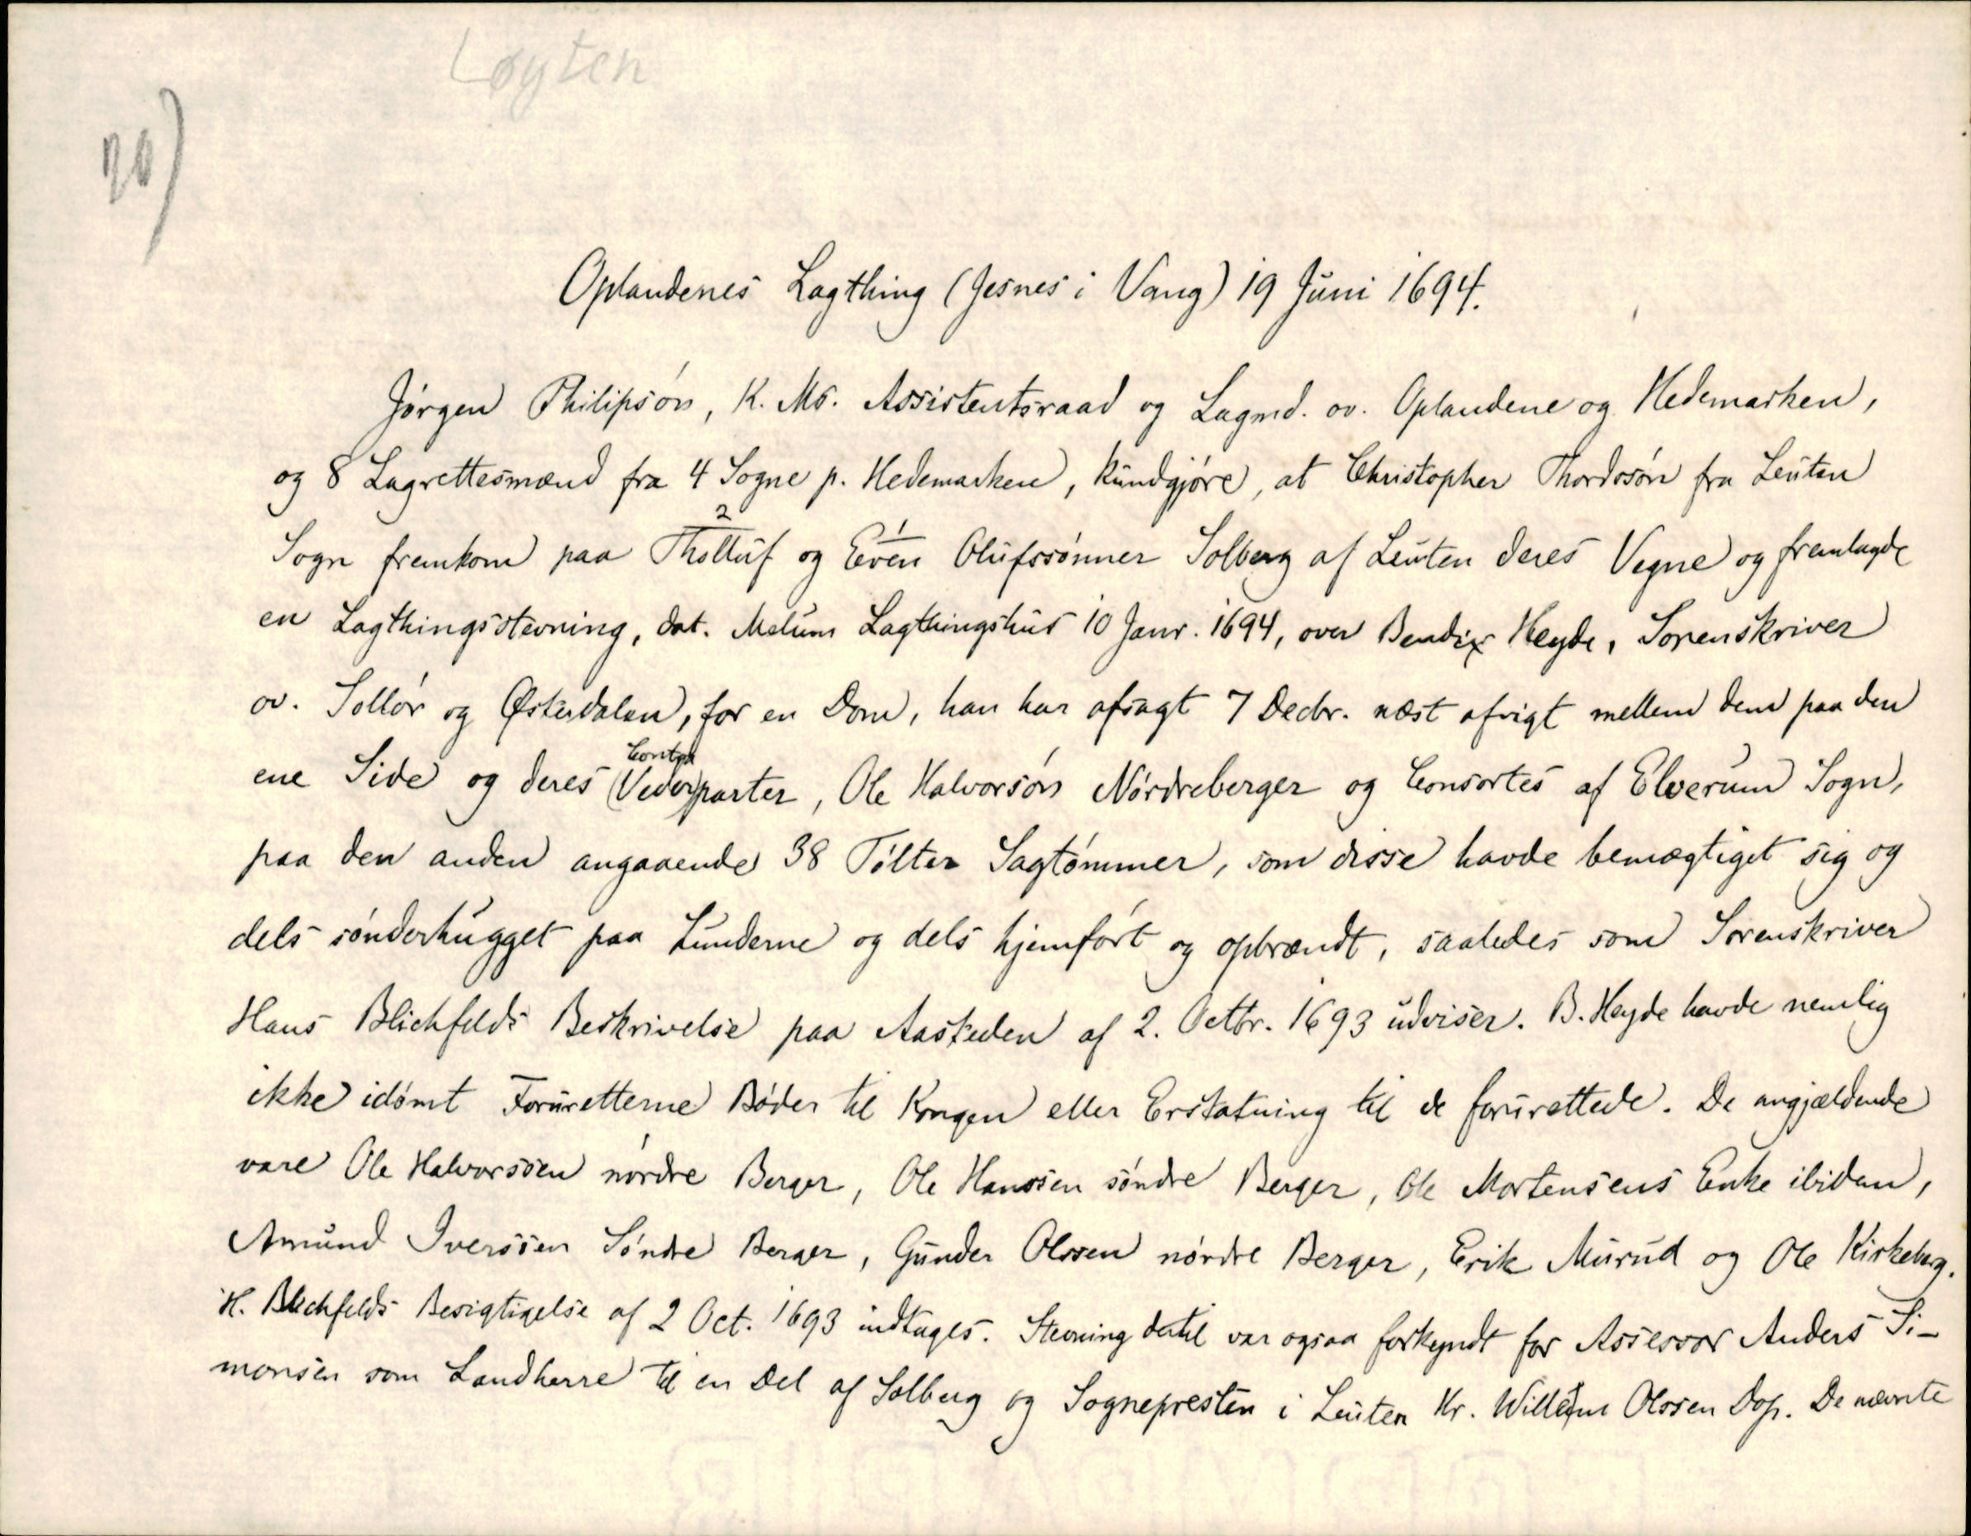 Løyten
20)
Oplandenes Lagthing (Jesnes i Vang) 19 Juni 1694.
Jørgen Philipsøn, K. Ms. Assistentsraad og Lagmd. ov. Oplandene og Hedemarken,
og 8 Lagrettesmænd fra 4 Sogne p. Hedemarken, kundgjøre, at Christopher Thordssøn fra Leuten
2 1
Sogn fremkom paa Tholluf og Even Olufssønner Solberg af Leuten deres Vegne og fremlagde
en Lagthingsstevning, dat. Melum Lagthingshus 10 Janr. 1694, over Bendix Heyde, Sorenskriver
ov. Solør og Østerdalen, for en Dom, han har afsagt 7 Decbr. næst afvigt mellem dem paa den
Contra
ene Side og deres (Veder)parter, Ole Halvorsøn Nørdreberger og Consortes af Elverum Sogn,
paa den anden angaaende 38 Tølter Sagtømmer, som disse havde bemægtiget sig og
dels sønderhugget paa Lunderne og dels hjemført og opbrændt, saaledes som Sorenskriver
Hans Blichfelds Beskrivelse paa Aasteden af 2. Octbr. 1693 udviser. B. Heyde havde nemlig
ikke idømt Foruretterne Bøder til Kongen eller Erstatning til de forurettede. De angjældende
vare Ole Halvorssen nørdre Berger, Ole Hanssen søndre Berger, Ole Mortensens Enke ibidem,
Amund Iverssen Søndre Berger, Gunder Olssen nørdre Berger, Erik Murud og Ole Kirkeberg.
H. Blichfelds Besigtigelse af 2 Oct. 1693 indtages. Stevning dertil var ogsaa forkyndt for Assessor Anders Si-
monsen som Landherre til en Del af Solberg og Sognepresten i Leuten Hr. Willem Olssen Dop. De nævnte